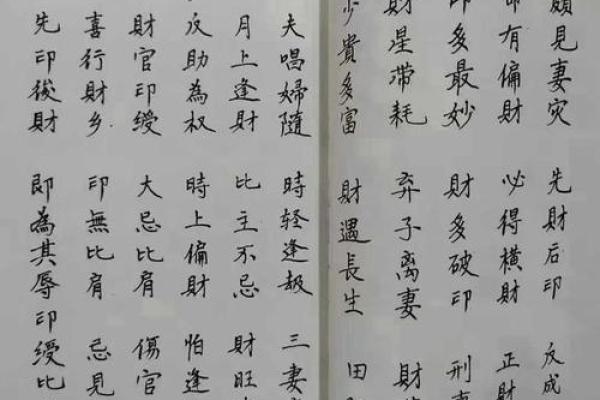 見妻灾 先財后印 反成
有偏財 必得横財 正財
多最妙 財多破印 刑
財星滞耗 弃子离妻 財
少貴多富 財遇長生 田
夫唱婦隨 時轻逢劫 三妻
月上逢財 比主不忌 財旺
反助為权 時上偏財 怕逢
財官印绶 大忌比肩 傷官
喜行財乡 印無比肩 忌見
先印後財 即為其辱 印绶比